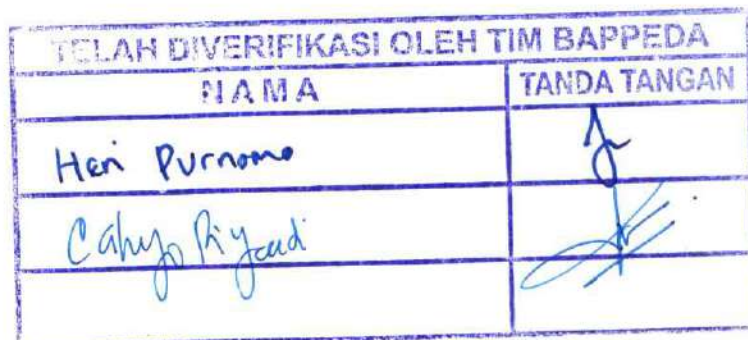 TELAH DIVERIFIKASI OLEH TIM BAPPEDA
NAMA TANDA TANGAN
Heri Purnomo
Cahyo Riyadi